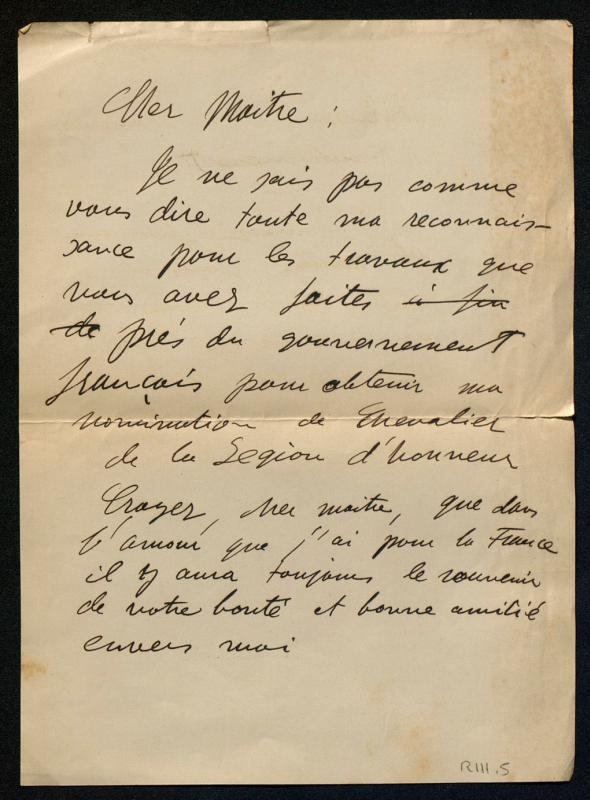 Cher Maitre :
Je ne sais pas comme
vous dire toute ma reconnais-
sance pour les travaux que
vous avez faites à fin
de prés du gouvernement
français pour obtenir ma
nomination de Chevalier
de la Legion d'honneur
Croyez, cher maitre, que dans
l'amour que j'ai pour la France
il y aura toujours le souvenir
de votre bonté et bonne amitié
envers moi
RIII.5